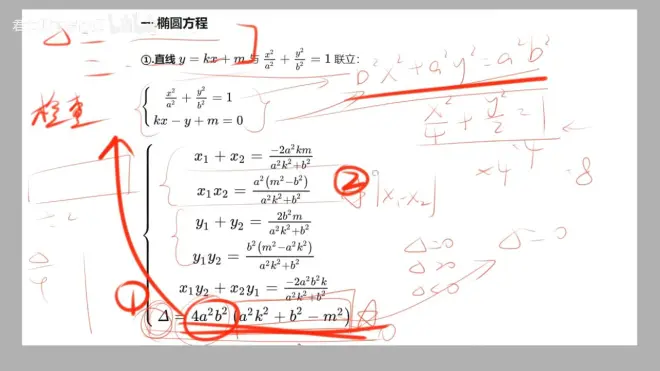 一.椭圆方程
Δ =
①.直线 y = kx + m 与 x²/a² + y²/b² = 1 联立:
b²x² + a²y² = a²b²
{ x²/a² + y²/b² = 1
kx − y + m = 0
检查
x²/4 + y²/2 = 1
·4
×4
=8
{ x₁ + x₂ = −2a²km / (a²k² + b²)
x₁x₂ = a²(m² − b²) / (a²k² + b²)
②
|x₁-x₂|
y₁ + y₂ = 2b²m / (a²k² + b²)
y₁y₂ = b²(m² − a²k²) / (a²k² + b²)
x₁y₂ + x₂y₁ = −2a²b²k / (a²k² + b²)
Δ = 4a²b²(a²k² + b² − m²)
①
Δ=0
Δ>0
Δ<0
Δ=0
Δ/4